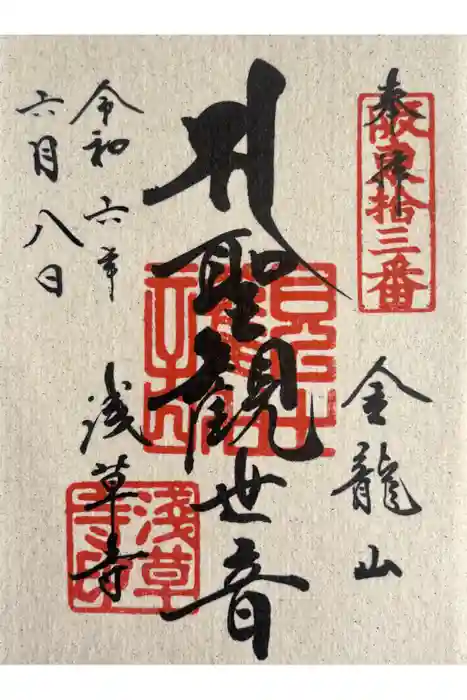 奉拝
坂東拾三番
金龍山
聖観世音
浅草寺
浅草寺印
令和六年
六月八日